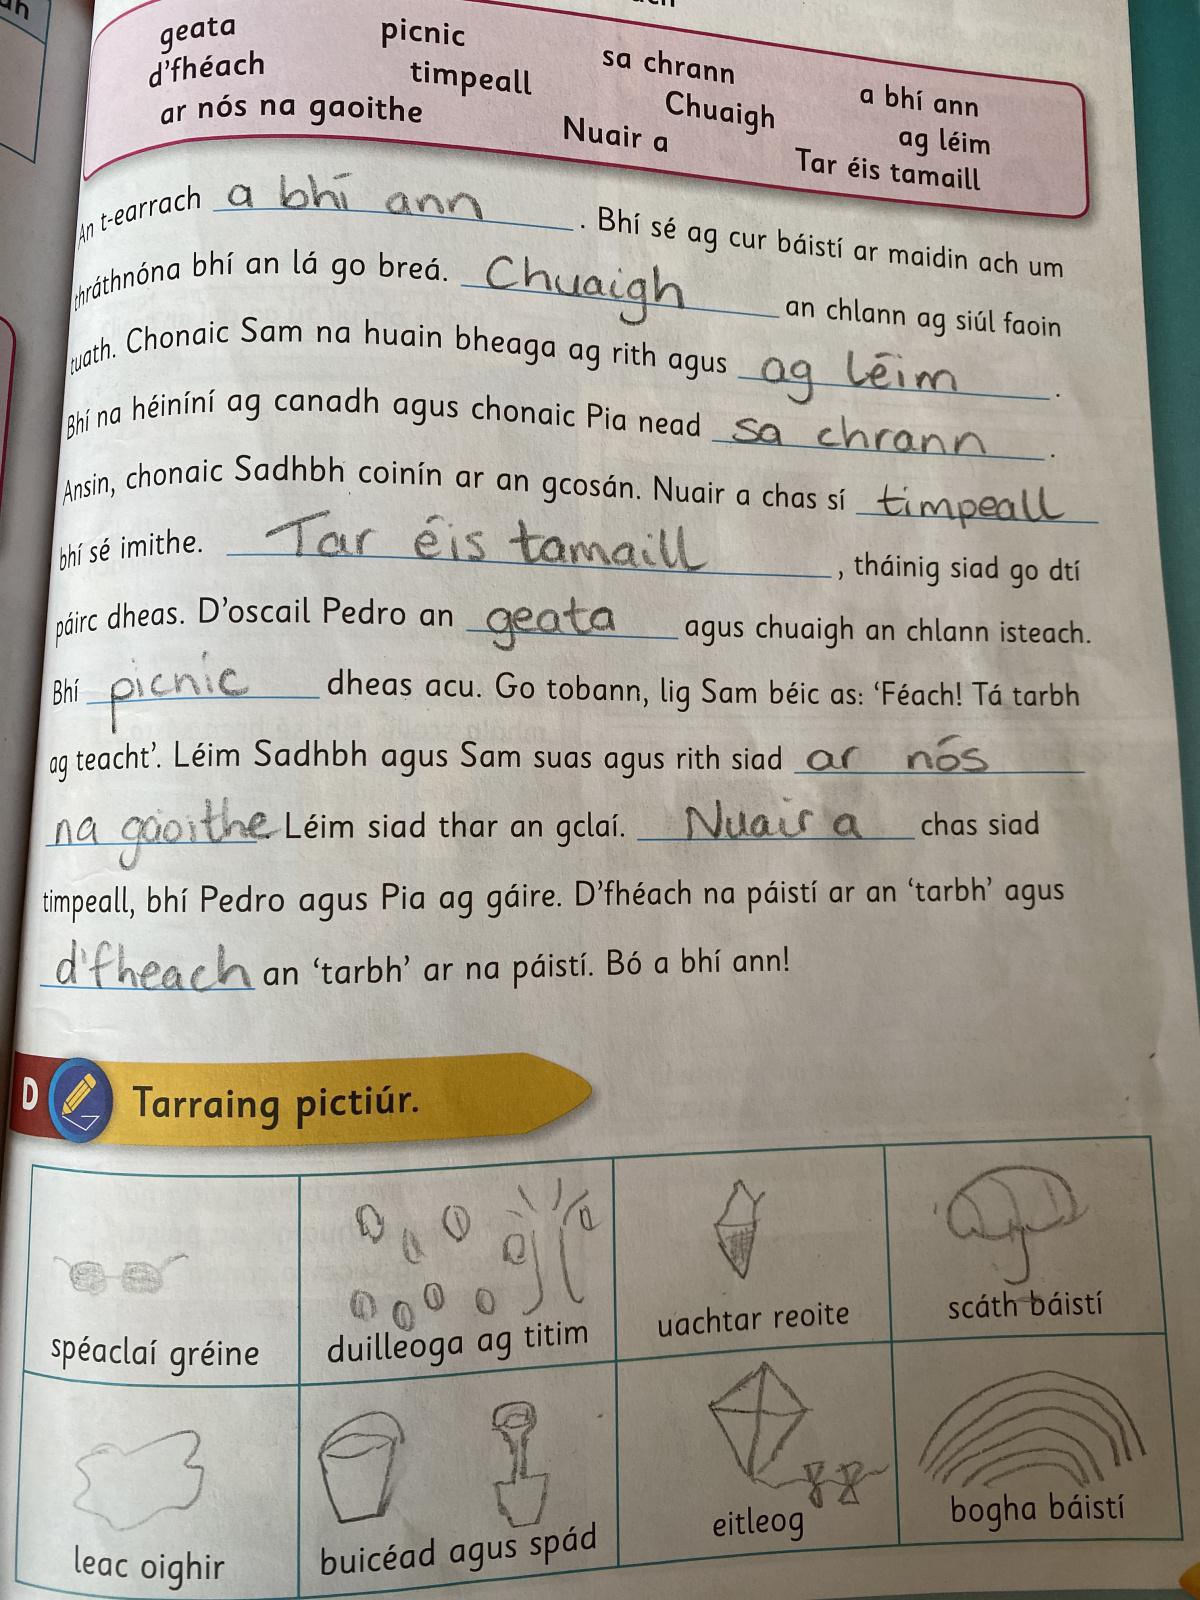 geata picnic sa chrann a bhí ann
d'fhéach timpeall Chuaigh ag léim
ar nós na gaoithe Nuair a Tar éis tamaill
An t-earrach a bhí ann . Bhí sé ag cur báistí ar maidin ach um
thráthnóna bhí an lá go breá. Chuaigh an chlann ag siúl faoin
tuath. Chonaic Sam na huain bheaga ag rith agus ag léim .
Bhí na héiníní ag canadh agus chonaic Pia nead sa chrann .
Ansin, chonaic Sadhbh coinín ar an gcosán. Nuair a chas sí timpeall
bhí sé imithe. Tar éis tamaill , tháinig siad go dtí
páirc dheas. D'oscail Pedro an geata agus chuaigh an chlann isteach.
Bhí picnic dheas acu. Go tobann, lig Sam béic as: 'Féach! Tá tarbh
ag teacht'. Léim Sadhbh agus Sam suas agus rith siad ar nós
na gaoithe. Léim siad thar an gclaí. Nuair a chas siad
timpeall, bhí Pedro agus Pia ag gáire. D'fhéach na páistí ar an 'tarbh' agus
d'fheach an 'tarbh' ar na páistí. Bó a bhí ann!
D Tarraing pictiúr.
spéaclaí gréine duilleoga ag titim uachtar reoite scáth báistí
leac oighir buicéad agus spád eitleog bogha báistí